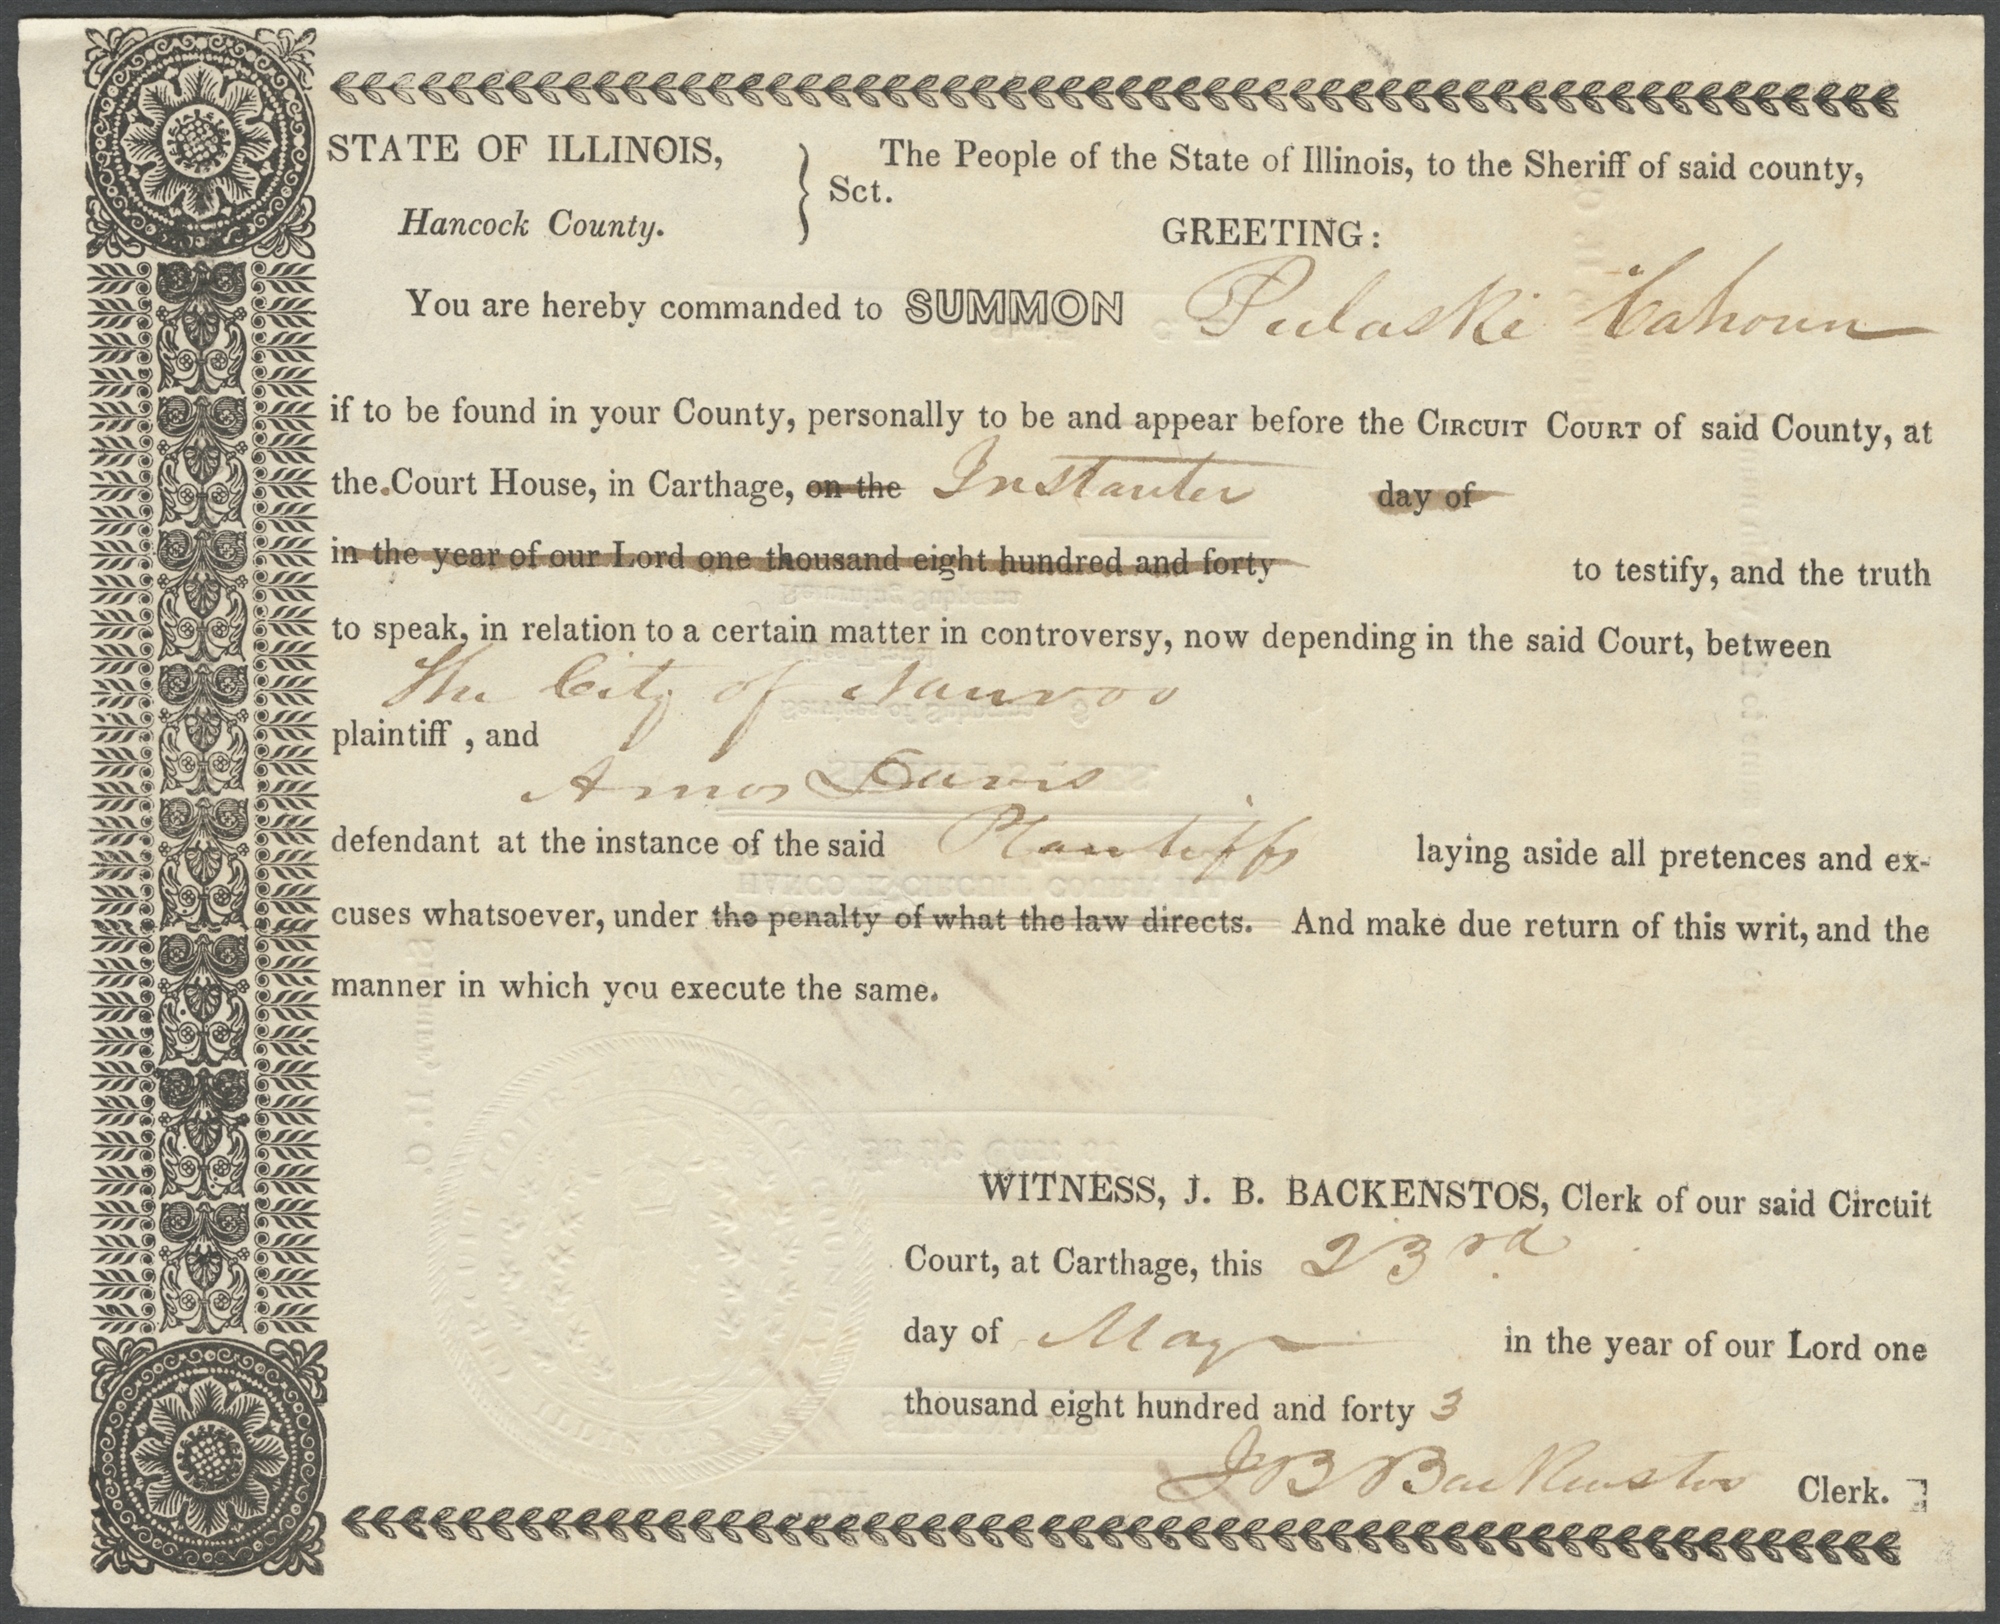 STATE OF ILLINOIS, } Sct. The People of the State of Illinois, to the Sheriff of said county,
Hancock County. GREETING:
You are hereby commanded to SUMMON Pulaski Cahoun
if to be found in your County, personally to be and appear before the CIRCUIT COURT of said County, at
the Court House, in Carthage, on the Instanter day of
in the year of our Lord one thousand eight hundred and forty to testify, and the truth
to speak, in relation to a certain matter in controversy, now depending in the said Court, between
The City of Nauvoo
plaintiff , and
Amos Davis
defendant at the instance of the said Plantiffs laying aside all pretences and ex-
cuses whatsoever, under the penalty of what the law directs. And make due return of this writ, and the
manner in which you execute the same.
WITNESS, J. B. BACKENSTOS, Clerk of our said Circuit
Court, at Carthage, this 23rd
day of May in the year of our Lord one
thousand eight hundred and forty 3
J B Backenstos Clerk.